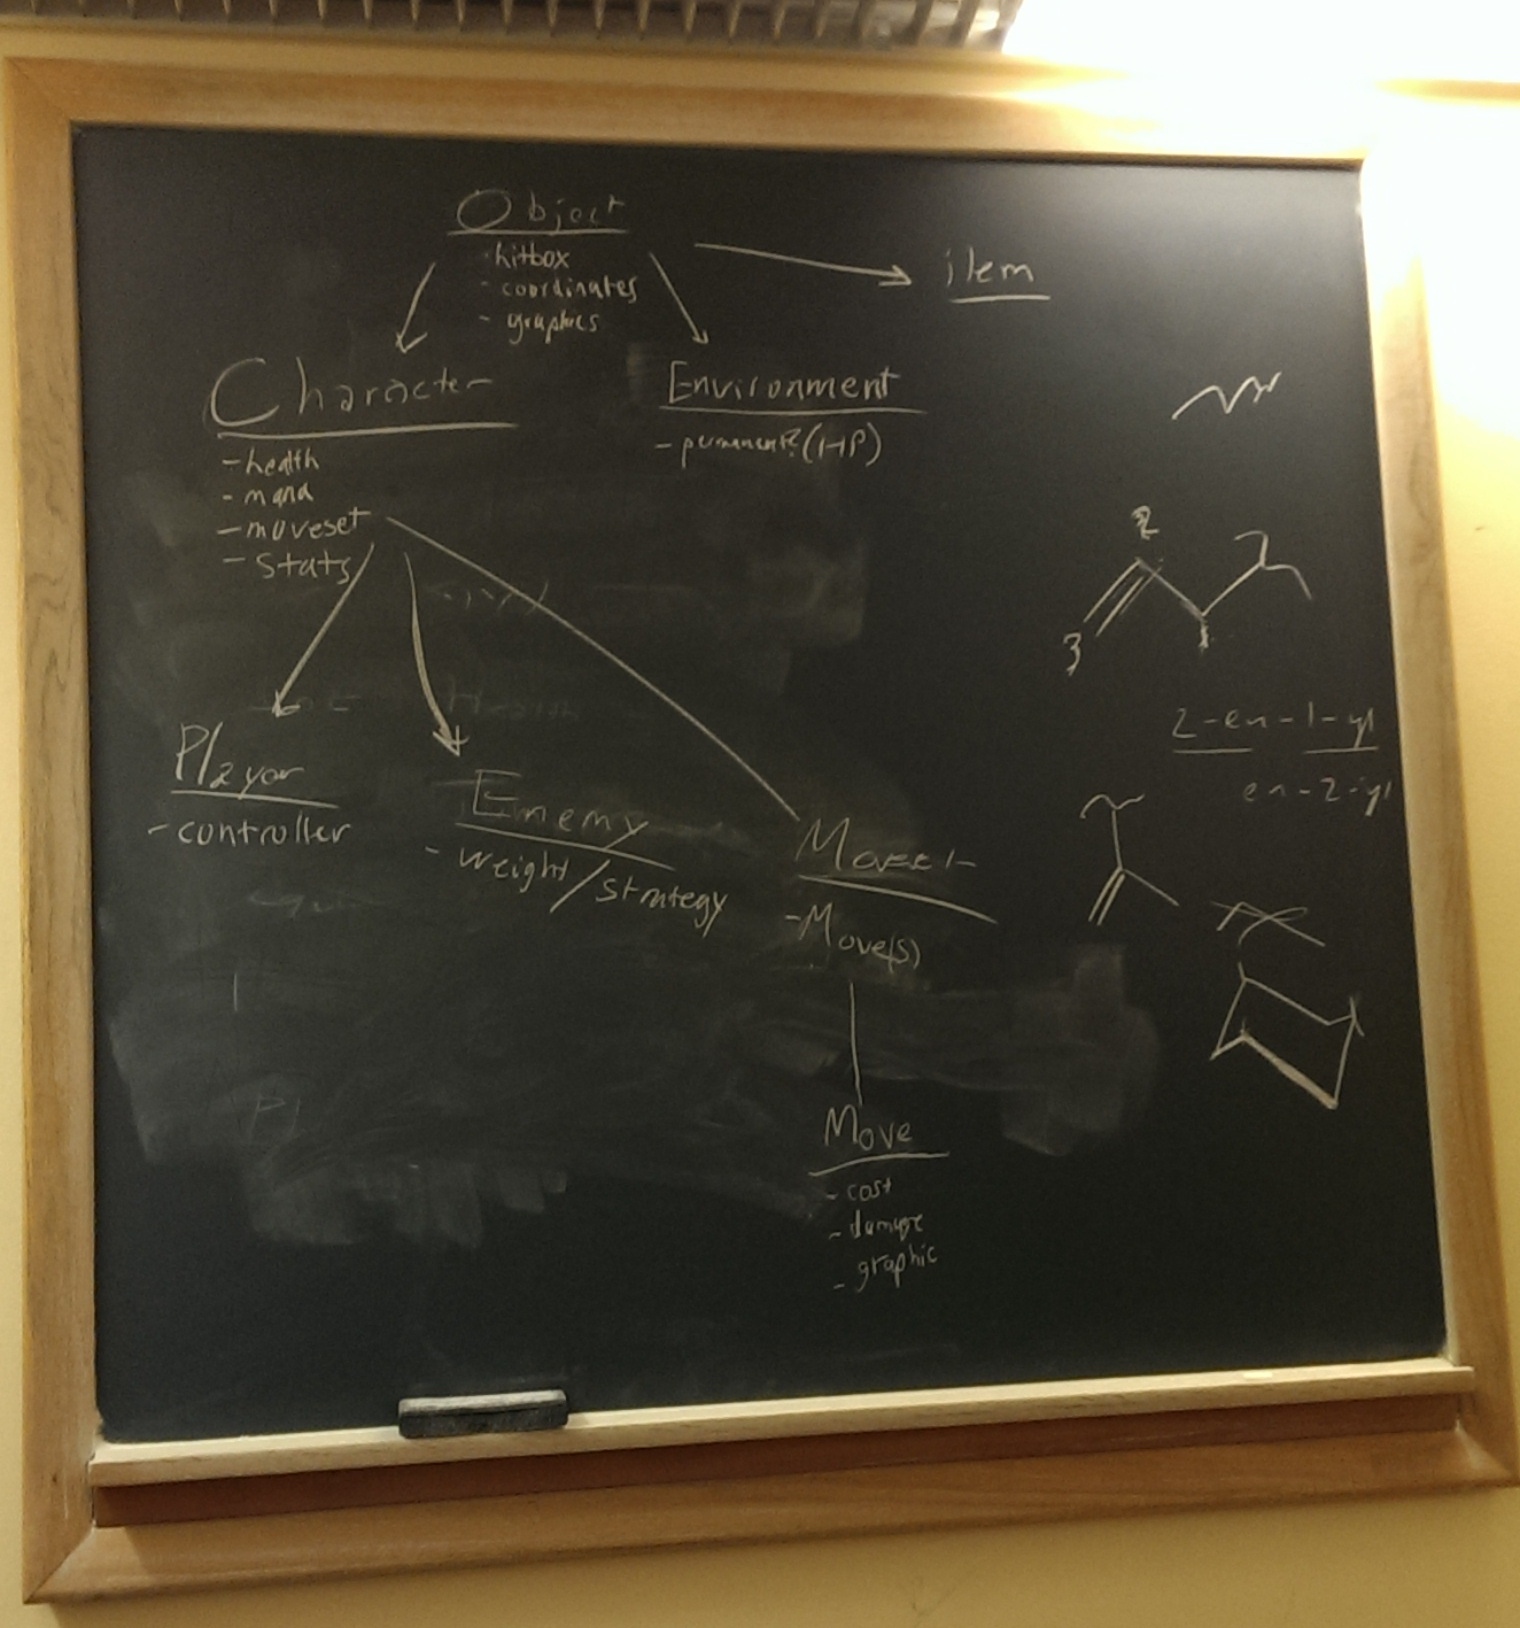 Object
- hitbox
- coordinates
- graphics
item
Character
- health
- mana
- moveset
- stats
Environment
- permanent? (HP)
2
3
1
2-en-1-yl
en-2-yl
Player
- controller
Enemy
- weight/strategy
- Move(s)
Move
- cost
- damage
- graphic